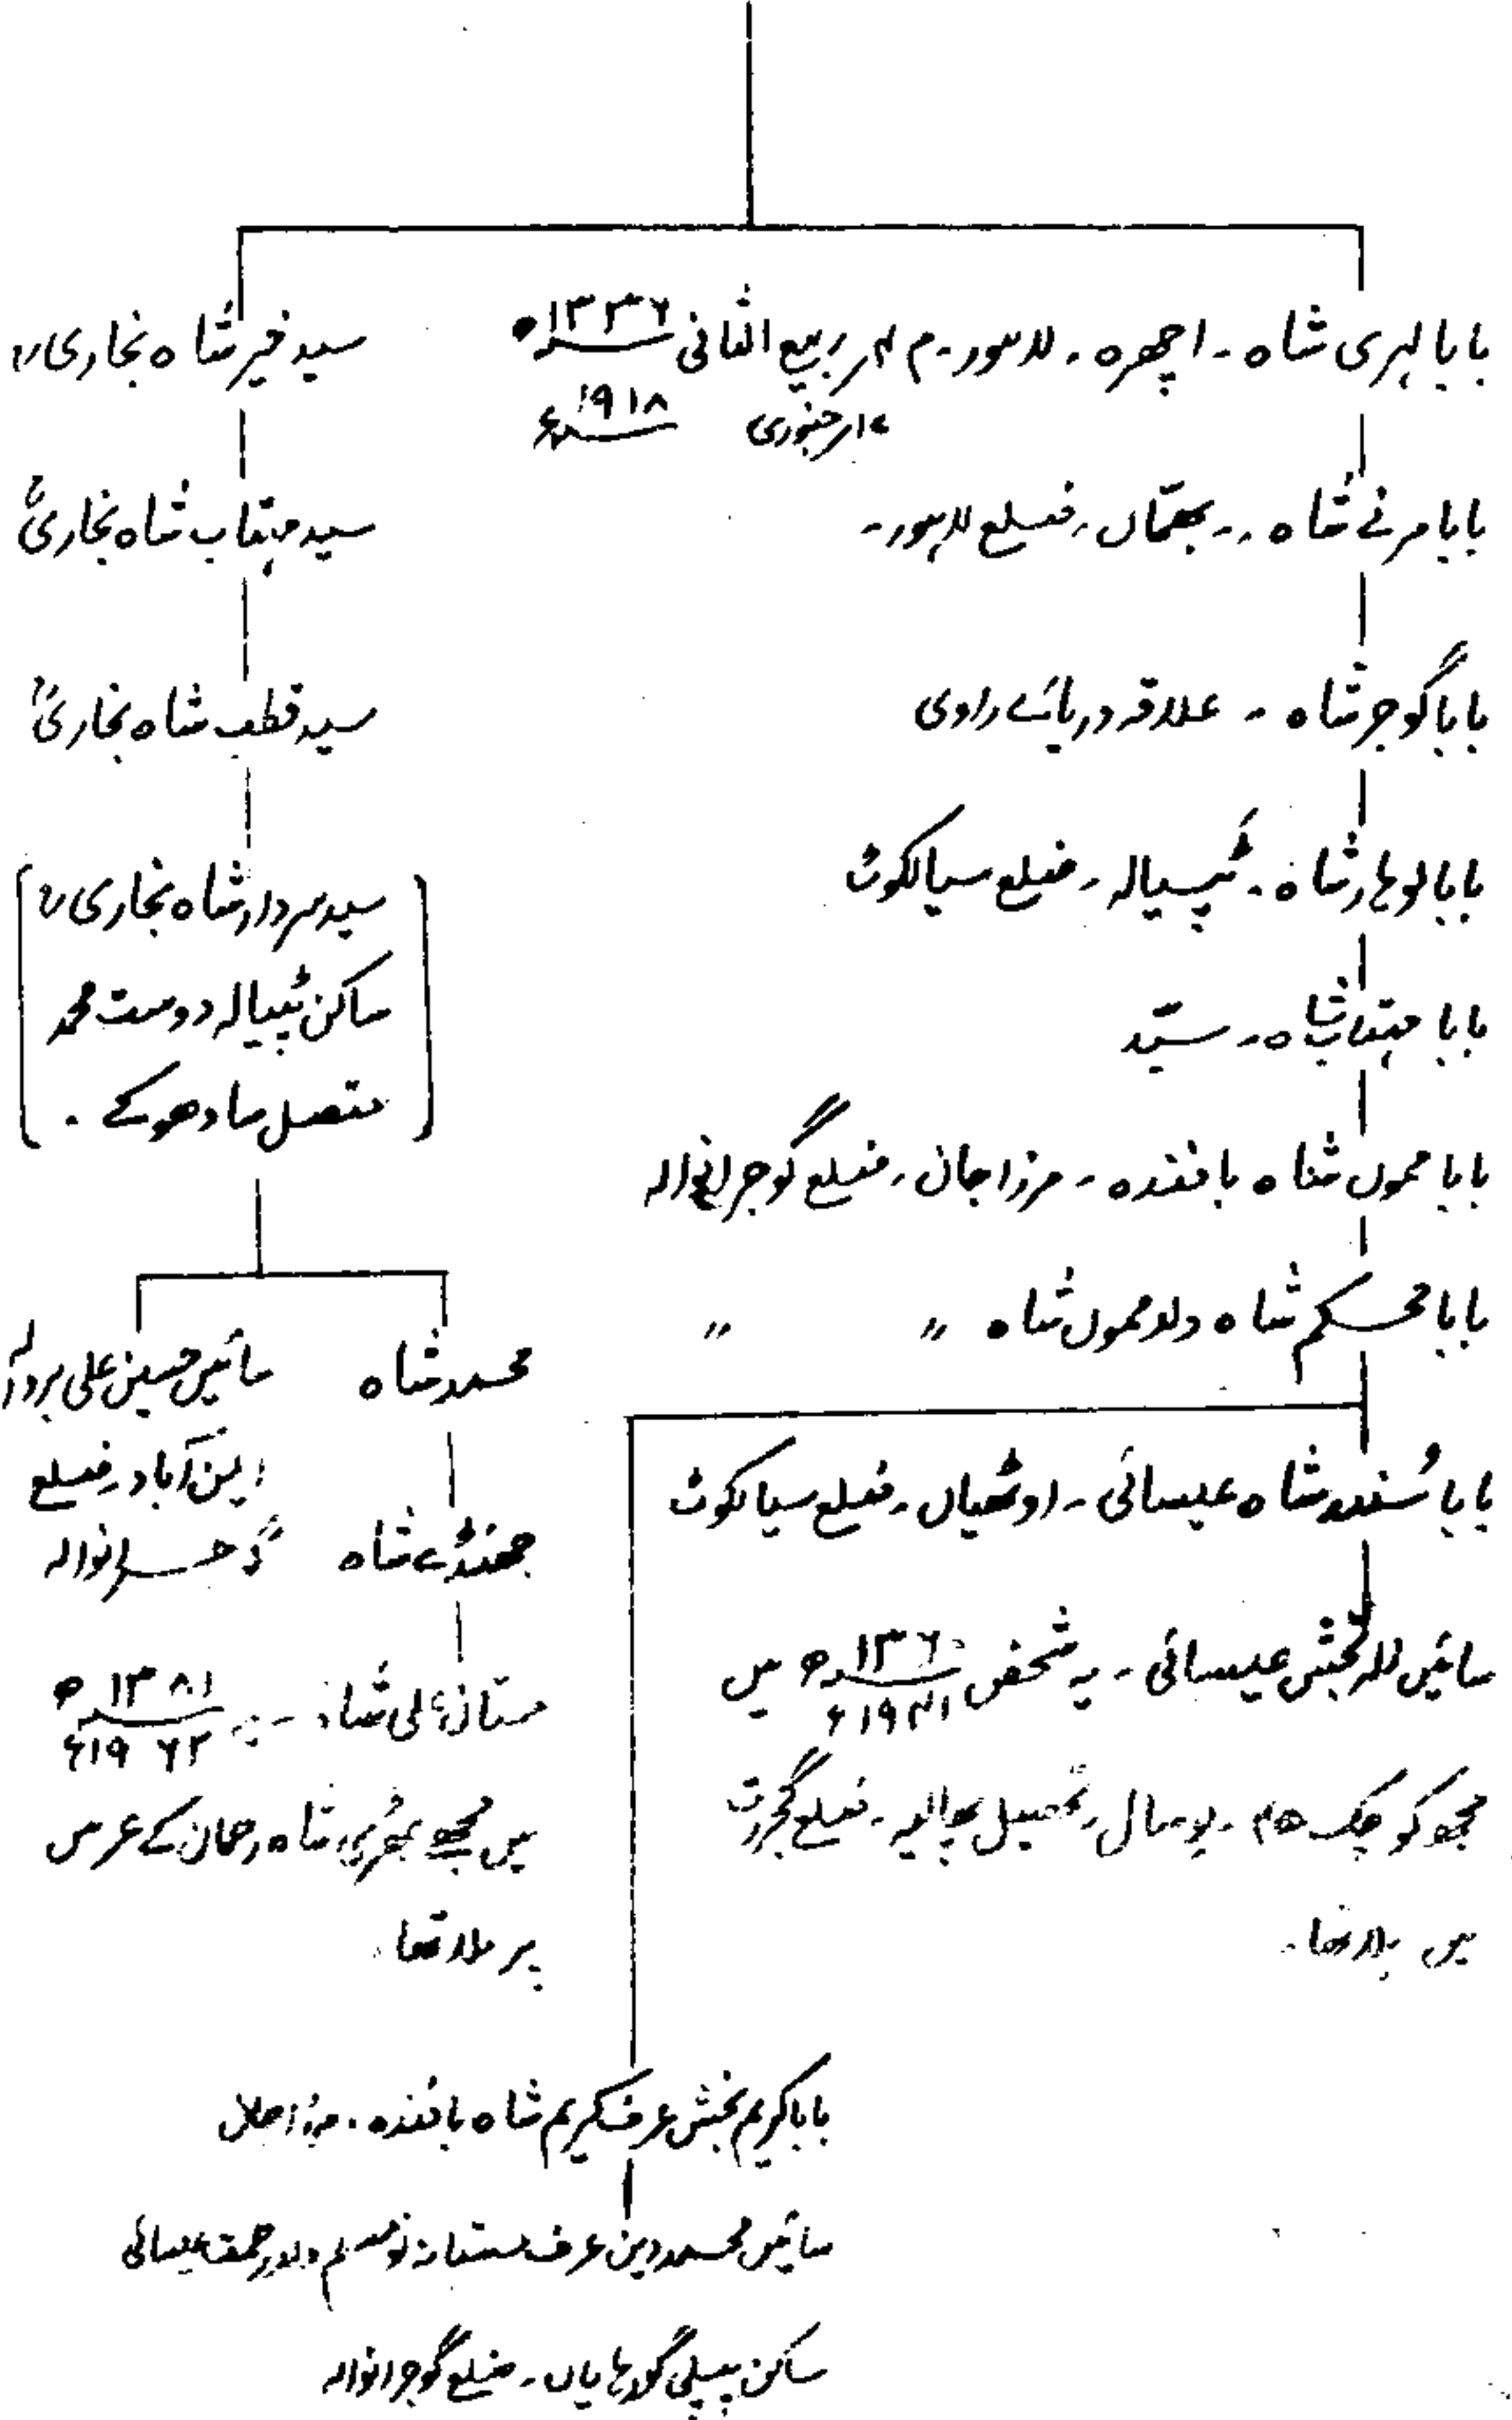 بابا لہری شاہ ۔ اچھرہ ۔ لاہور ۔ م ۴؍ ربیع الثانی ۱۳۳۶ھ
۱۷؍ جنوری ۱۹۱۸ء
بابا مرنے شاہ ۔۔ ضلع لاہور ۔
بابا گوجر شاہ ۔ علاقہ دریائے راوی
بابا لوہار شاہ ۔ ضلع سیالکوٹ
بابا مہتاب شاہ ۔ سیّد
بابا محموں شاہ بافندہ ۔ مرزا جان ، ضلع گوجرانوالہ
بابا محکم شاہ ولد محموں شاہ " "
بابا سُندر شاہ عیسائی ۔ ضلع سیالکوٹ
سائیں اللہ بخش عیسائی ۔ یہ شخص ۱۳۶۰ھ / ۱۹۴۱ء میں
مجھ کو چک ۴۵ ۔ تحصیل پھالیہ ۔ ضلع گجرات
میں ملا تھا ۔
بابا کریم بخش عرف کریم شاہ بافندہ ۔ مرزا جان
سائیں محمد دین عرف مستانہ نو مسلم ولد رحمت عیسائی
ساکن پیپلی گورہایاں ۔ ضلع گوجرانوالہ
سید خیر شاہ بخاریؒ
سید مہتاب شاہ بخاریؒ
سید قطب شاہ بخاریؒ
سید سردار شاہ بخاریؒ
ساکن ٹپیالہ دوست محمد
متصل سادھوکے ۔
محمد شاہ
جھنڈے شاہ
مستان علی شاہ ۔ یہ ۱۳۸۱ھ / ۱۹۶۲ء
میں مجھے بھڑی شاہ رحمان کے عرس
پر ملا تھا ۔
سائیں حسین علی
ایمن آباد ، ضلع
گوجرانوالہ